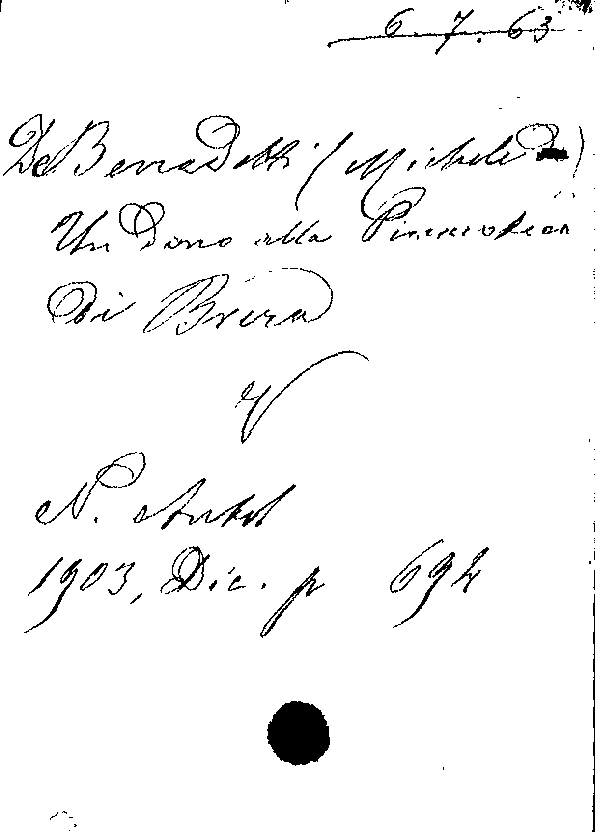 6.7.63
De Benedetti (Michele De)
Un Dono alla Pinacoteca
Di Brera
V
N. Antol
1903, Dic. p 694